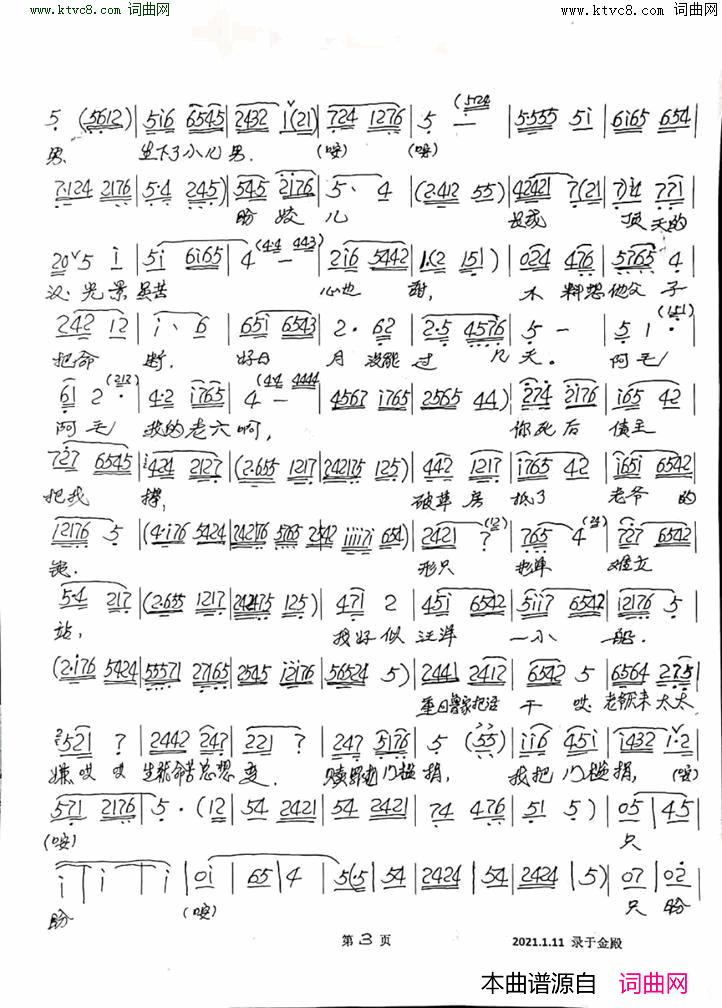 www.ktvc8.com 词曲网 www.ktvc8.com 词曲网
5 (5612) | 5i6 6545 | 2432 i(21) | 724 1276 | 5 — (5724 | 5·555 5i | 6i65 654 |
男, 生下了小儿男. (咹) (咹)
7·124 2176 | 5·4 245) | 545 2176 | 5· 4 | (2·412 55) | 42421 7(21 | 7) 771 |
盼 姣 儿 长成 顶 天的
20 5 i | 5i 6i65 | 4 — (4·4 443) | 2i6 5442 | 1(2 151) | 024 476 | 5765 4 |
汉. 光景虽苦 心也 甜, 不 料想他父 子
242 12 | i· 6 | 65i 6543 | 2· 62 | 2·5 4576 | 5 — | 5 1· (151) |
把命 断. 好日 月 没能 过 几 天. 阿毛
6i 2· (212) | 4·2 i765 | 4 — (4·4 4444 | 4567 i765 | 2565 44) | 274 2176 | i65 42 |
阿毛 我的老六啊, 你死后 债主
727 6545 | 424 2127 | (2·655 1217 | 242175 125) | 442 1217 | i765 42 | i65i 6542 |
把我 撵, 破草房 抵了 老爷 的
12176 5 | (4·i76 5424 | 242176 5765 2542 iiii7i 654) | 2421 7 (12) | 765 4 (24) | 727 6542 |
钱. 形只 影单 难立
5·4 217 | (2·655 1217 | 242475 125) | 471 2 | 45i 6542 | 5ii7 6542 | i2176 5 |
站, 我好似 汪洋 一小 船.
(2·i76 5424 | 55571 27165 | 2545 i2i76 | 56524 5) | 2441 2412 | 6542 5 | 6564 275 |
重回鲁家把活 干 哎. 老爷来太太
521 7 | 2442 247 | 221 7 | 247 5176 | 5 (55) | ii6 45i | i432 i·2 |
嫌哎 哎 生就命苦怎想 变. 赎罪 门槛捐, 我把门槛捐, (咹)
571 2176 | 5· (12 | 54 2421 | 54 2421 | 74 476 | 51 5) | 05 | 45 |
(咹) 只
i | i | i | 0i | 65 | 4 | 5(·5 | 54 | 2424 | 54 | 2424 | 5) | 07 | 02 |
盼 (咹) 只 盼
第 3 页 2021.1.11 录于金殿
本曲谱源自 词曲网